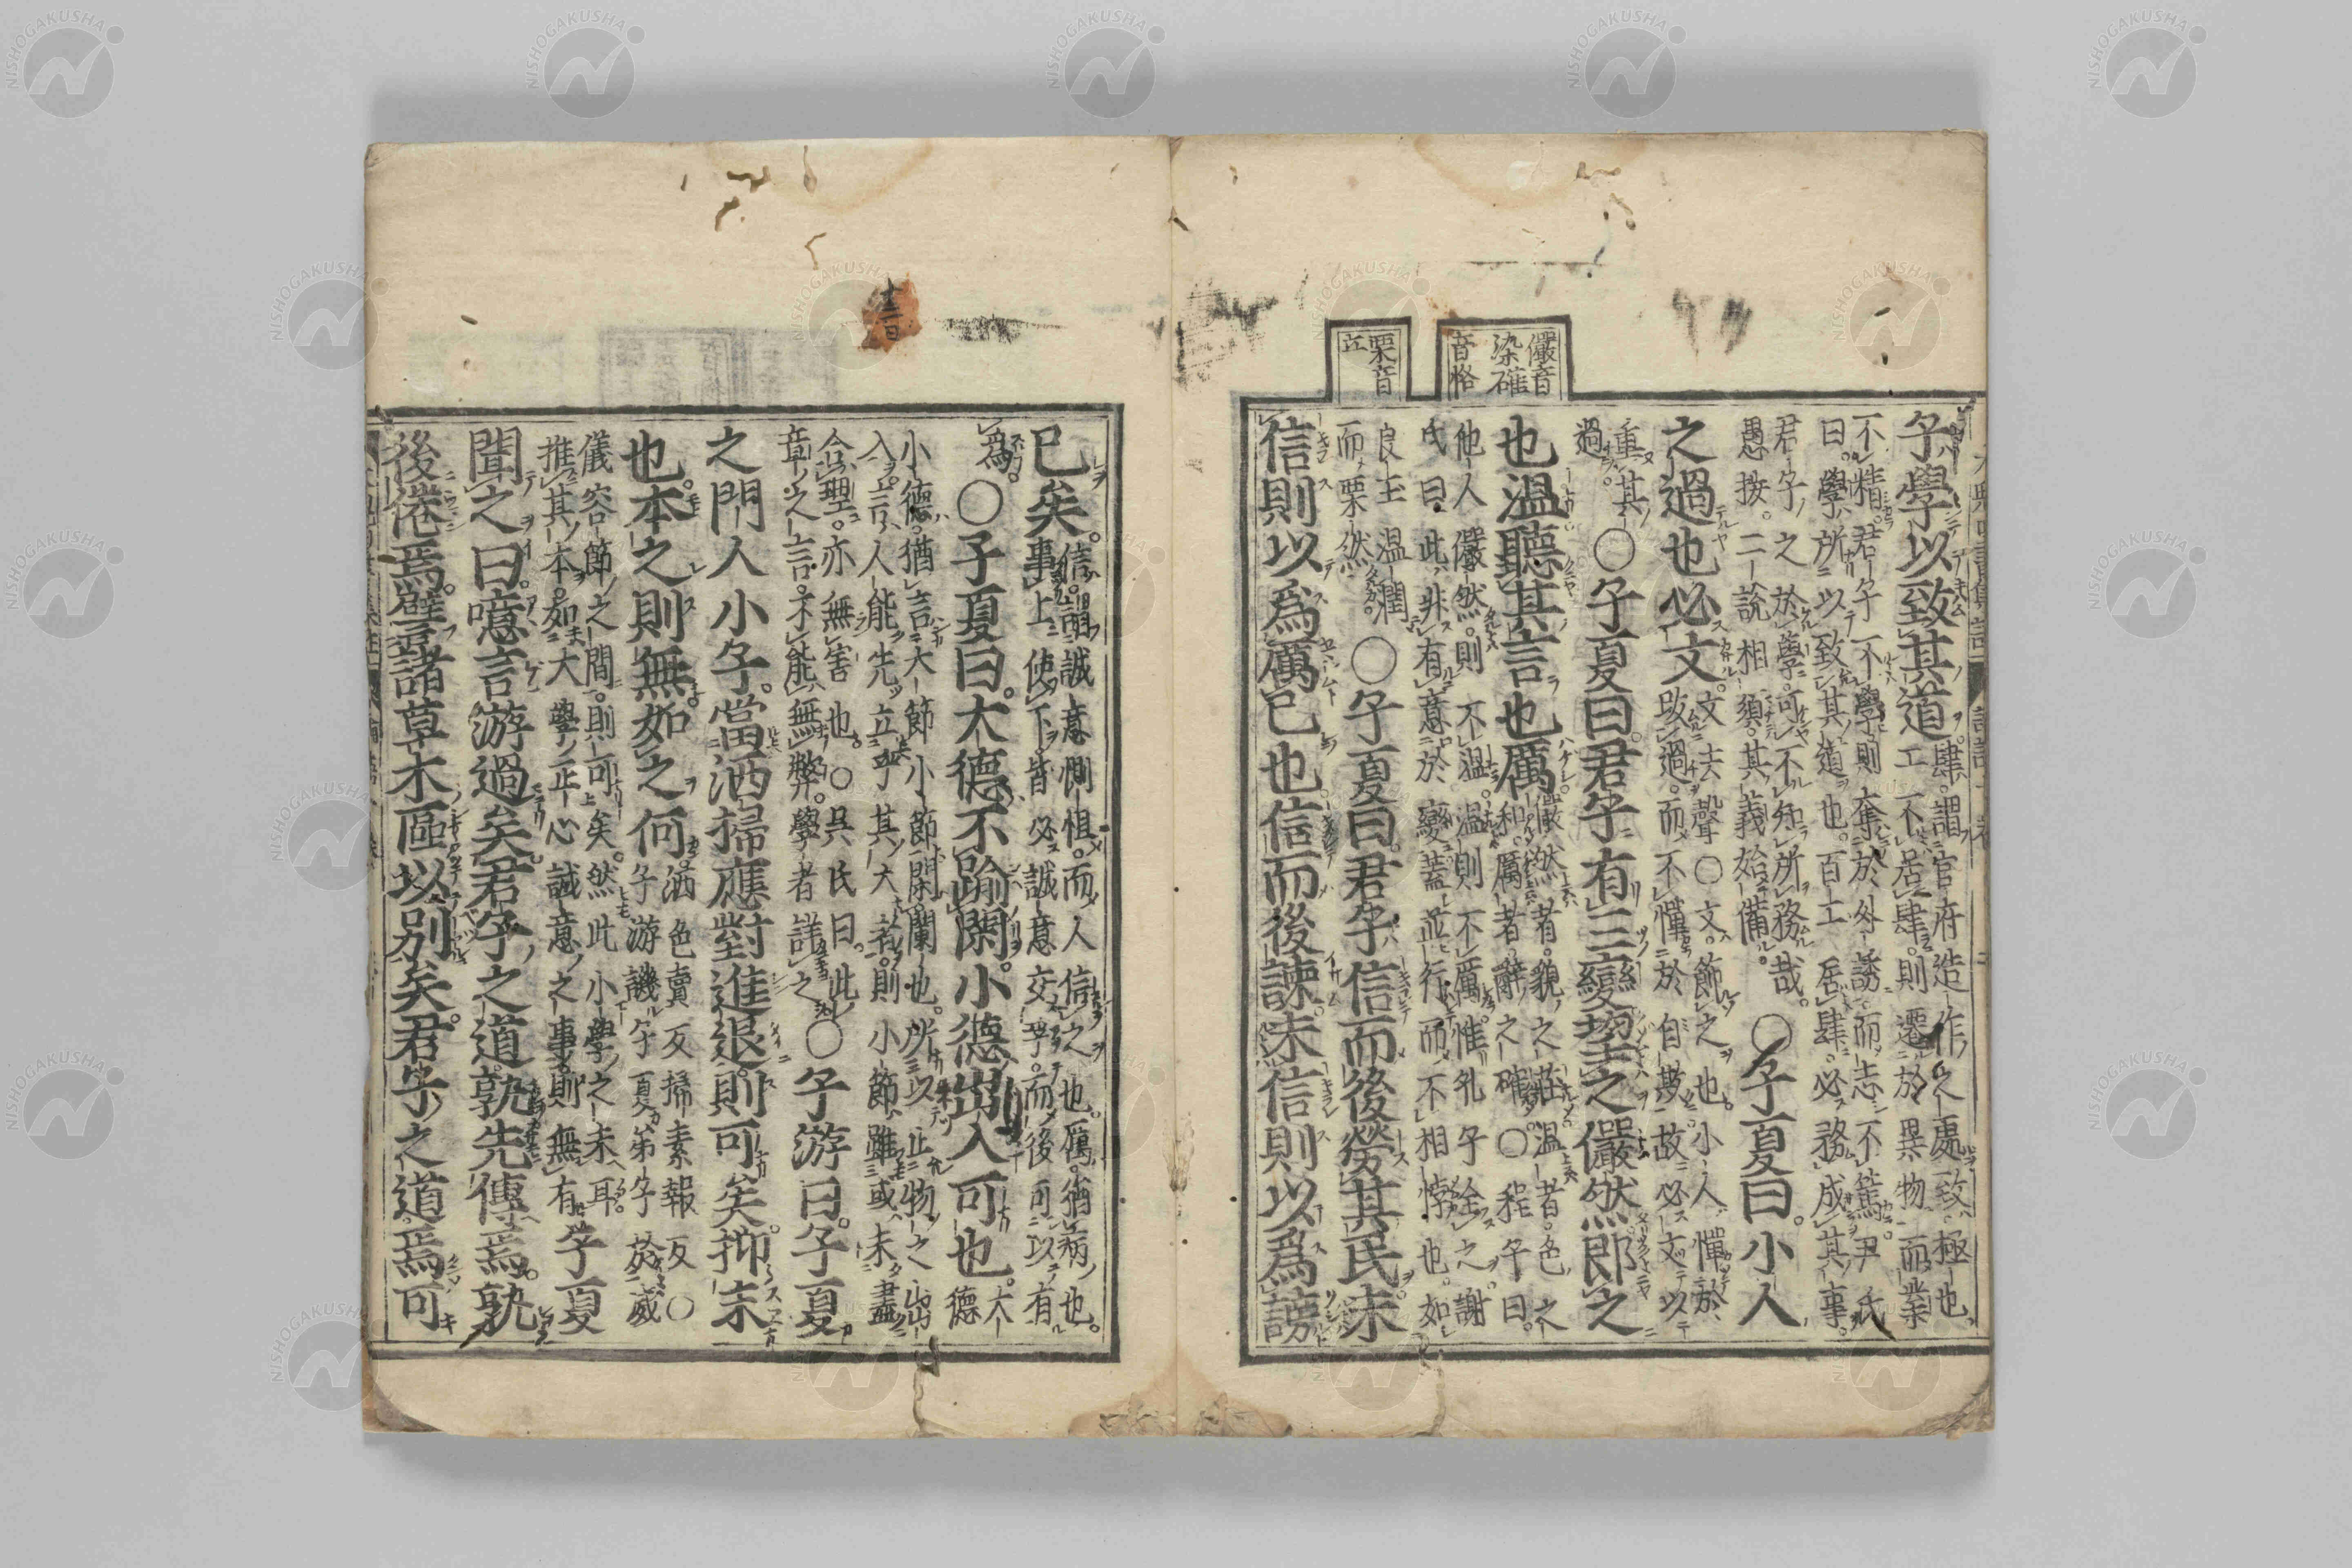 儼音
染確
音恪
栗音
子學以致其道
肆謂官府造作之處致極也
工不居肆則遷於異物而業
不精君子不學則奪於外誘而志不篤尹氏
曰學所以致其道也百工居肆必務成其事
君子之於學可不知所務哉
愚按二說相須其義始備
○子夏曰小人
之過也必文
文去聲○文飾之也小人憚於
改過而不憚於自欺故必文以
重其
過
○子夏曰君子有三變望之儼然即之
也温聽其言也厲
儼然者貌之莊温者色之
和厲者辭之確○程子曰
他人儼然則不温温則不厲惟孔子全之謝
氏曰此非有意於變蓋並行而不相悖也如
良玉温潤
而栗然
○子夏曰君子信而後勞其民未
信則以爲厲已也信而後諫未信則以爲謗
已矣
信謂誠意惻怛而人信之也厲猶病也
事上使下皆必誠意交孚而後可以有
爲
○子夏曰大德不踰閑小德出入可也
大
德
小德猶言大節小節閑闌也所以止物之出
入言人能先立乎其大者則小節雖或未盡
合理亦無害也○吳氏曰此
章之言不能無弊學者詳之
○子游曰子夏
之門人小子當洒掃應對進退則可矣抑末
也本之則無如之何
洒色賣反掃素報反○
子游譏子夏弟子於威
儀容節之間則可矣然此小學之末耳
推其本如大學正心誠意之事則無有
子夏
聞之曰噫言游過矣君子之道孰先傳焉孰
後倦焉譬諸草木區以別矣君子之道焉可
NISHOGAKUSHA